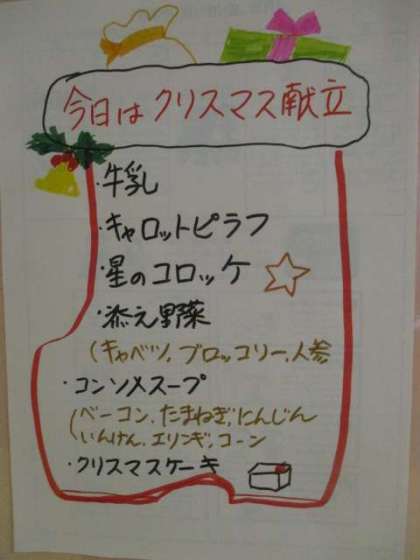 今日はクリスマス献立
・牛乳
・キャロットピラフ
・星のコロッケ
・添え野菜
(キャベツ,ブロッコリー,人参
・コンソメスープ
(ベーコン,たまねぎ,にんじん
いんげん,エリンギ,コーン
・クリスマスケーキ